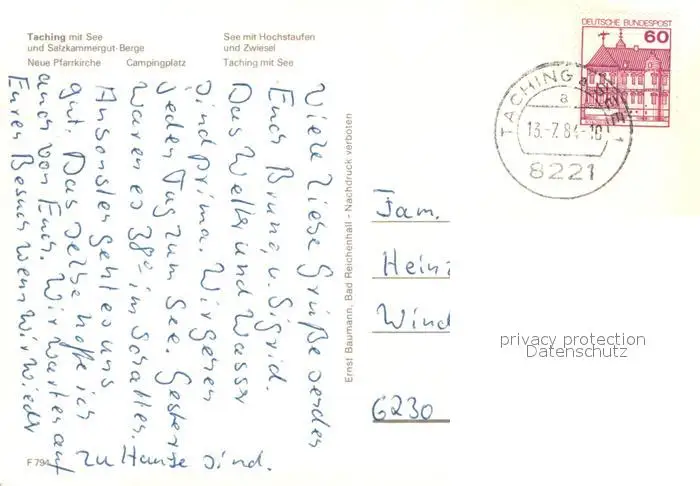 Taching mit See
und Salzkammergut-Berge
Neue Pfarrkirche Campingplatz
See mit Hochstaufen
und Zwiesel
Taching mit See
DEUTSCHE BUNDESPOST
60
TACHING a. SEE 1
a
13.-7.84-10
8221
Viele liebe Grüße senden
Euch Bruno, u. Sigrid.
Das Wetter und Wasser
sind prima. Wir gehen
jeden Tag zum See. Gestern
waren es 38° im Schatten.
Ansonsten geht es uns
gut. Das selbe hoffe ich
auch von Euch. Wir warten auf
Euren Besuch wenn wir wieder
zu Hause sind.
Ernst Baumann, Bad Reichenhall - Nachdruck verboten
Fam.
Hein
Wind
6230
privacy protection
Datenschutz
F 794